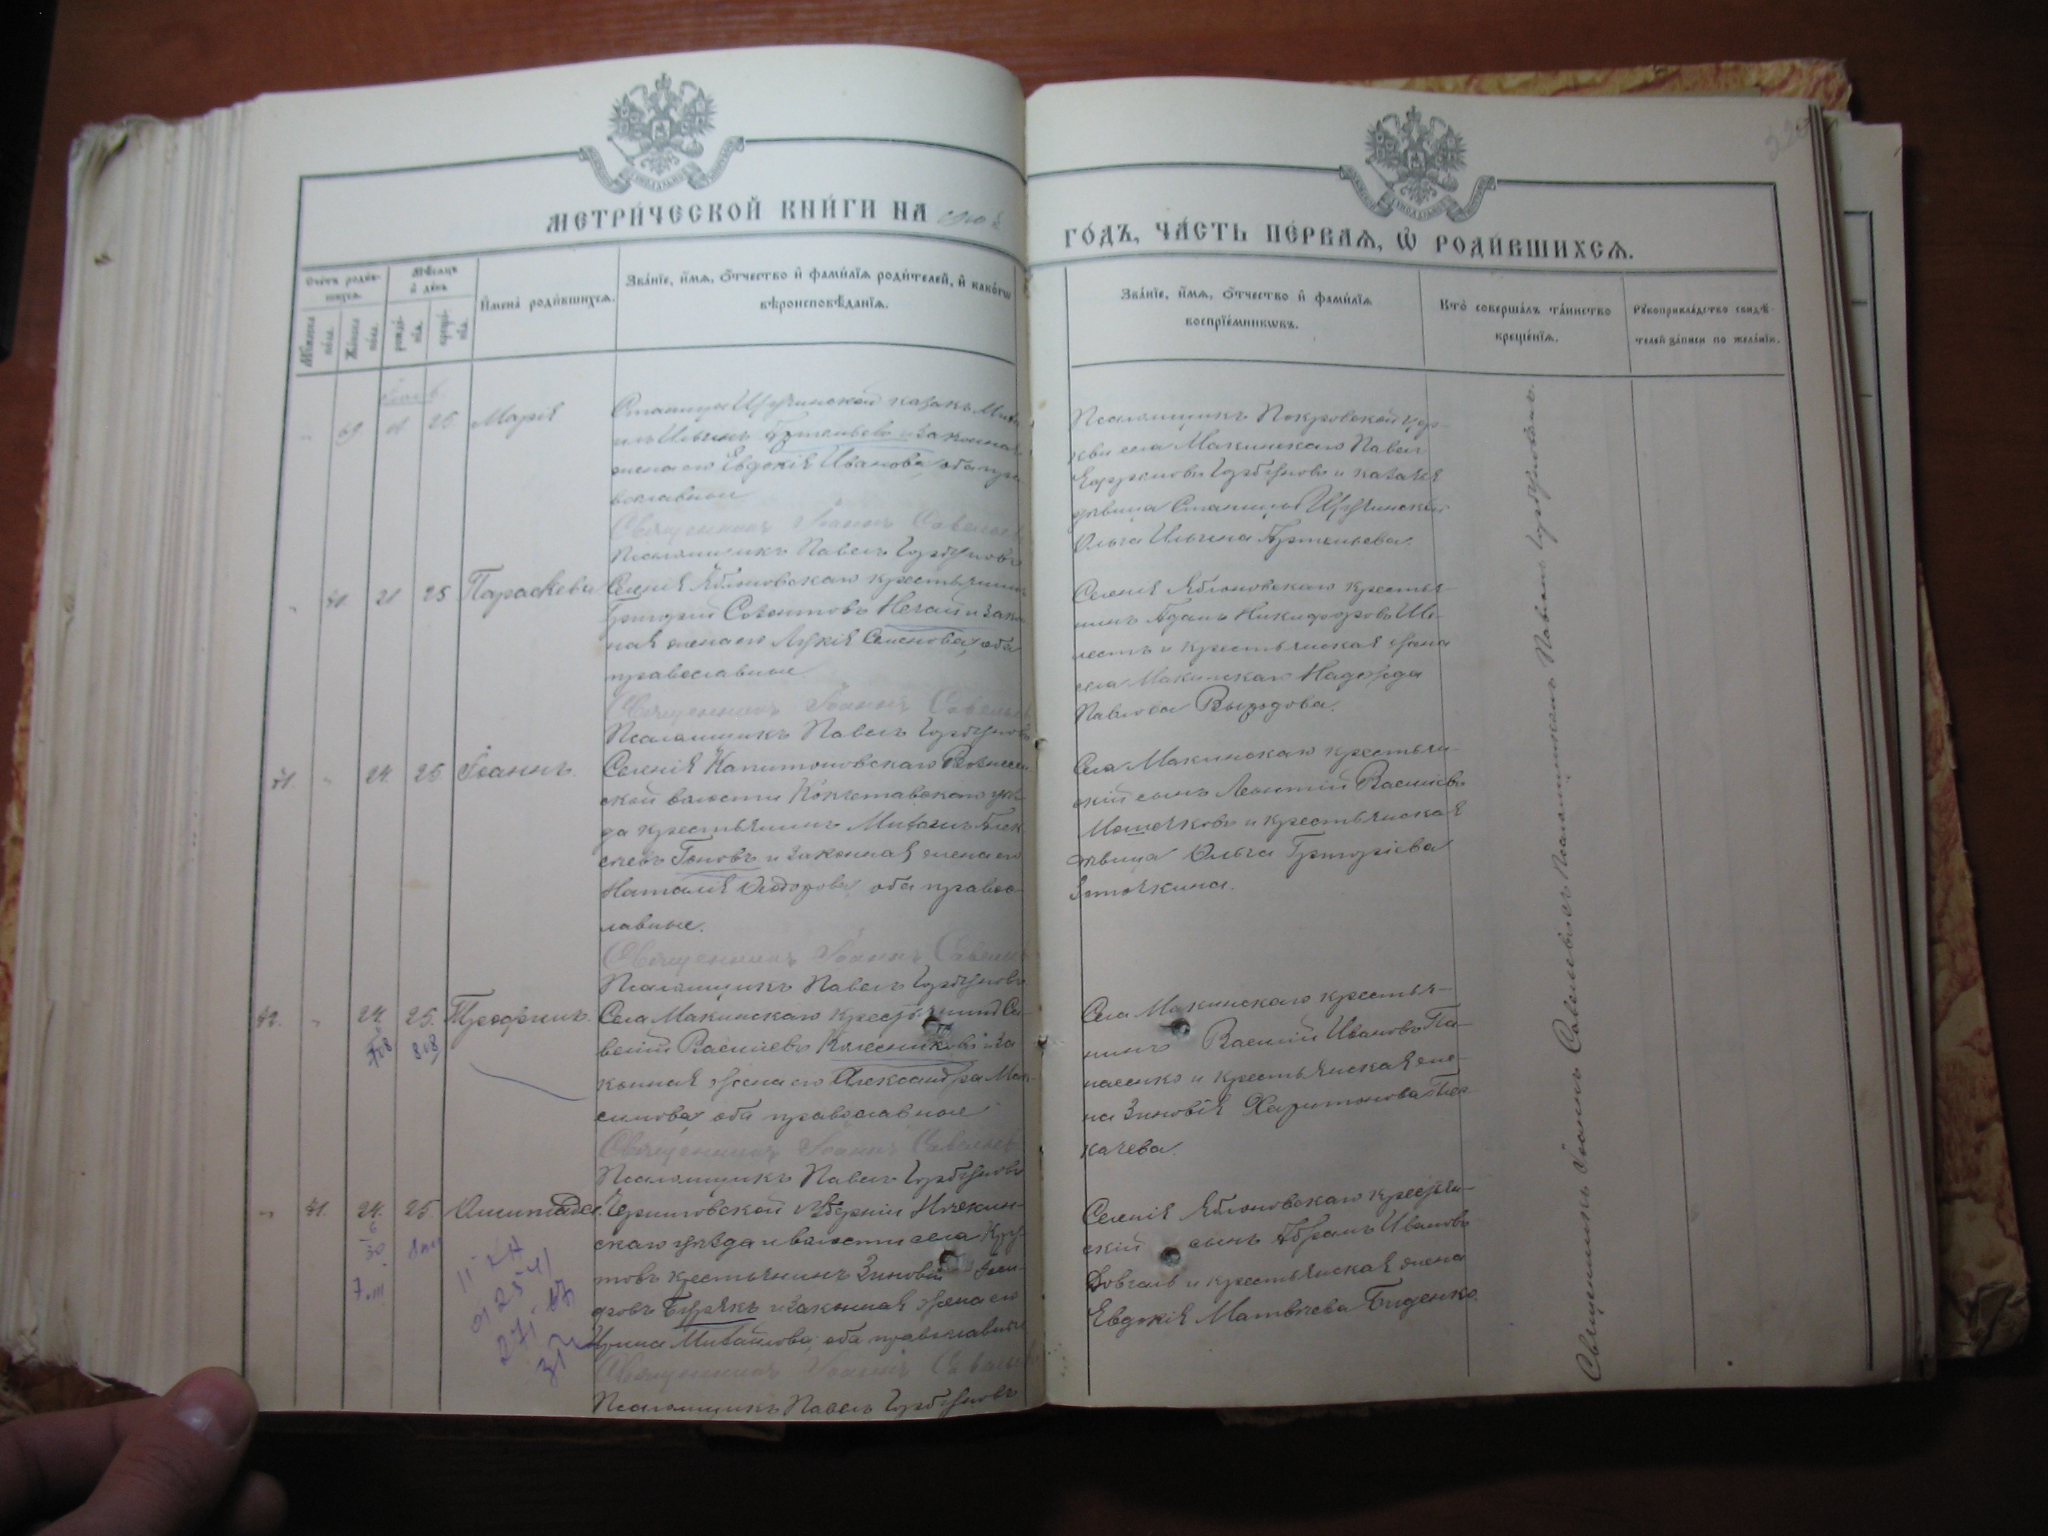 МЕТРИ́ЧЕСКОЙ КНИ́ГИ НА 1910 г.
ГО́ДЪ, ЧА́СТЬ ПЕ́РВАѦ, Ѽ РОДИ́ВШИХСѦ.
Сче́тъ роди́в-
шихсѧ.
Мѣ́сѧцъ
и де́нь
Мꙋ́жеска
по́ла.
Же́нска
по́ла.
рожде́-
нїѧ.
креще́-
нїѧ.
И́мена роди́вшихсѧ.
Зва́нїе, и́мѧ, ѻ́тчество и фами́лїѧ роди́телей, и како́гѡ
вѣроисповѣ́данїѧ.
Зва́нїе, и́мѧ, ѻ́тчество и фами́лїѧ
воспрїе́мникѡвъ.
Кто̀ соверша́лъ та́инство
креще́нїѧ.
Рꙋкоприкла́дство свидѣ́-
телей за́писи по жела́нїю.
69 25 Марія
Станицы Щучинской казакъ Миха-
илъ Ильинъ Артемьевъ и законная
жена его Евдокія Иванова, оба пра-
вославные
Священникъ Іоаннъ Савельевъ
Псаломщикъ Павелъ Горбуновъ
Псаломщикъ Покровской цер-
кви села Макинскаго Павелъ
Горбуновъ и казачья
дѣвица Станицы Щучинской
Ольга Ильина Артемьева.
21 25 Параскева
Селенія Яблоновскаго крестьянинъ
Григорій Нечай и закон-
ная жена его Лукія Семенова, оба
православные
Священникъ Іоаннъ Савельевъ
Псаломщикъ Павелъ Горбуновъ
Селенія Яблоновскаго крестья-
нинъ Адамъ Никифоровъ Ше-
лестъ и крестьянская жена
села Макинскаго Надежда
Павлова
71. " 24. 25 Іоаннъ.
Селенія Капитоновскаго Вознесен-
ской волости Кокчетавскаго уѣз-
да крестьянинъ Михаилъ Алек-
сѣевъ Поповъ и законная жена его
Наталія Ѳеодорова, оба правос-
лавные.
Священникъ Іоаннъ Савельевъ
Псаломщикъ Павелъ Горбуновъ
Села Макинскаго крестьян-
скій сынъ Леонтій Васильевъ
и крестьянская
дѣвица Ольга Григоріева
72. " 24. 25. Трофимъ.
708 808
Села Макинскаго крестьянинъ Са-
велій Васильевъ Колесниковъ и за-
конная жена его Александра Мак-
симова, оба православные
Священникъ Іоаннъ Савельевъ
Псаломщикъ Павелъ Горбуновъ
Села Макинскаго крестья-
нинъ Василій Ивановъ Па-
насенко и крестьянская же-
на Зиновія Харитонова
" 71. 24. 25. Олимпіада.
Черниговской губерніи Нѣжин-
скаго уѣзда и волости села Кру-
товъ крестьянинъ Зиновій
Бурякъ и законная жена его
Ирина Михайлова, оба православные
Священникъ Іоаннъ Савельевъ
Псаломщикъ Павелъ Горбуновъ
Селенія Яблоновскаго крестьян-
скій сынъ Абрамъ Ивановъ
Довгаль и крестьянская жена
Евдокія Матвѣева Биденко.
Священникъ Іоаннъ Савельевъ съ Псаломщикомъ Павломъ Горбуновымъ.